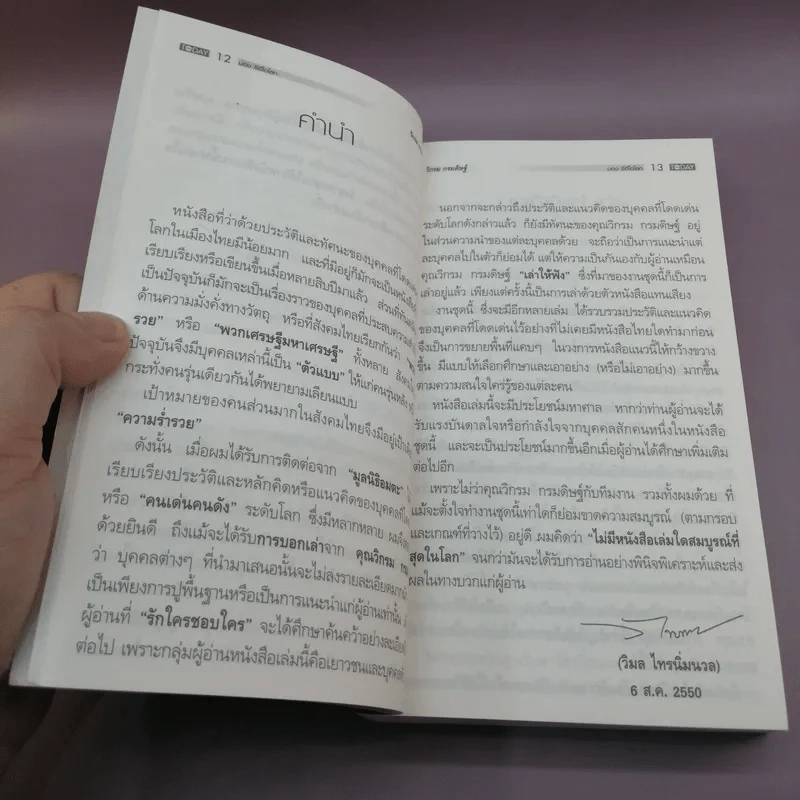 TODAY 12 มอง ซีอีโอโลก
คำนำ
หนังสือที่ว่าด้วยประวัติและทัศนะของบุคคลที่โดดเด่น
โลกในเมืองไทยมีน้อยมาก และที่มีอยู่ก็มักจะเป็นหนังสือ
เรียบเรียงหรือเขียนขึ้นเมื่อหลายสิบปีมาแล้ว ส่วนที่ทันสมัย
เป็นปัจจุบันก็มักจะเป็นเรื่องราวของบุคคลที่ประสบความสำ
ด้านความมั่งคั่งทางวัตถุ หรือที่สังคมไทยเรียกกันว่า
รวย" หรือ "พวกเศรษฐีมหาเศรษฐี" ทั้งหลาย
ปัจจุบันจึงมีบุคคลเหล่านี้เป็น "ตัวแบบ" ให้แก่คนรุ่นหลัง
กระทั่งคนรุ่นเดียวกันได้พยายามเลียนแบบ
เป้าหมายของคนส่วนมากในสังคมไทยจึงมีอยู่
"ความร่ำรวย"
ดังนั้น เมื่อผมได้รับการติดต่อจาก "มูลนิธิอมตะ"
เรียบเรียงประวัติและหลักคิดหรือแนวคิดของบุคคลที่
หรือ "คนเด่นคนดัง" ระดับโลก ซึ่งมีหลากหลาย
ด้วยยินดี ถึงแม้จะได้รับการบอกเล่าจาก คุณวิกรม
ว่า บุคคลต่างๆ ที่นำมาเสนอนั้นจะไม่ลงรายละเอียดมาก
เป็นเพียงการปูพื้นฐานหรือเป็นการแนะนำแก่ผู้อ่านเท่านั้น
ผู้อ่านที่ "รักใครชอบใคร" จะได้ศึกษาค้นคว้าอย่างละเอียด
ต่อไป เพราะกลุ่มผู้อ่านหนังสือเล่มนี้คือเยาวชนและบุคคล
วิกรม กรมดิษฐ์ มอง ซีอีโอโลก 13 TODAY
นอกจากจะกล่าวถึงประวัติและแนวคิดของบุคคลที่โดดเด่น
ระดับโลกดังกล่าวแล้ว ก็ยังมีทัศนะของคุณวิกรม กรมดิษฐ์ อยู่
ในส่วนความนำของแต่ละบุคคลด้วย จะถือว่าเป็นการแนะนำแต่
ละบุคคลไปในตัวก็ย่อมได้ แต่ให้ความเป็นกันเองกับผู้อ่านเหมือน
คุณวิกรม กรมดิษฐ์ "เล่าให้ฟัง" ซึ่งที่มาของงานชุดนี้ก็เป็นการ
เล่าอยู่แล้ว เพียงแต่ครั้งนี้เป็นการเล่าด้วยตัวหนังสือแทนเสียง
งานชุดนี้ ซึ่งจะมีอีกหลายเล่ม ได้รวบรวมประวัติและแนวคิด
ของบุคคลที่โดดเด่นไว้อย่างที่ไม่เคยมีหนังสือไทยใดทำมาก่อน
จึงเป็นการขยายพื้นที่แคบๆ ในวงการหนังสือแนวนี้ให้กว้างขวาง
ขึ้น มีแบบให้เลือกศึกษาและเอาอย่าง (หรือไม่เอาอย่าง) มากขึ้น
ตามความสนใจใคร่รู้ของแต่ละคน
หนังสือเล่มนี้จะมีประโยชน์มหาศาล หากว่าท่านผู้อ่านจะได้
รับแรงบันดาลใจหรือกำลังใจจากบุคคลสักคนหนึ่งในหนังสือ
ชุดนี้ และจะเป็นประโยชน์มากขึ้นอีกเมื่อผู้อ่านได้ศึกษาเพิ่มเติม
ต่อไปอีก
เพราะไม่ว่าคุณวิกรม กรมดิษฐ์กับทีมงาน รวมทั้งผมด้วย ที่
แม้จะตั้งใจทำงานชุดนี้เท่าใดก็ย่อมขาดความสมบูรณ์ (ตามกรอบ
และเกณฑ์ที่วางไว้) อยู่ดี ผมคิดว่า "ไม่มีหนังสือเล่มใดสมบูรณ์ที่
สุดในโลก" จนกว่ามันจะได้รับการอ่านอย่างพินิจพิเคราะห์และส่ง
ผลในทางบวกแก่ผู้อ่าน
(วิมล ไทรนิ่มนวล)
6 ส.ค. 2550